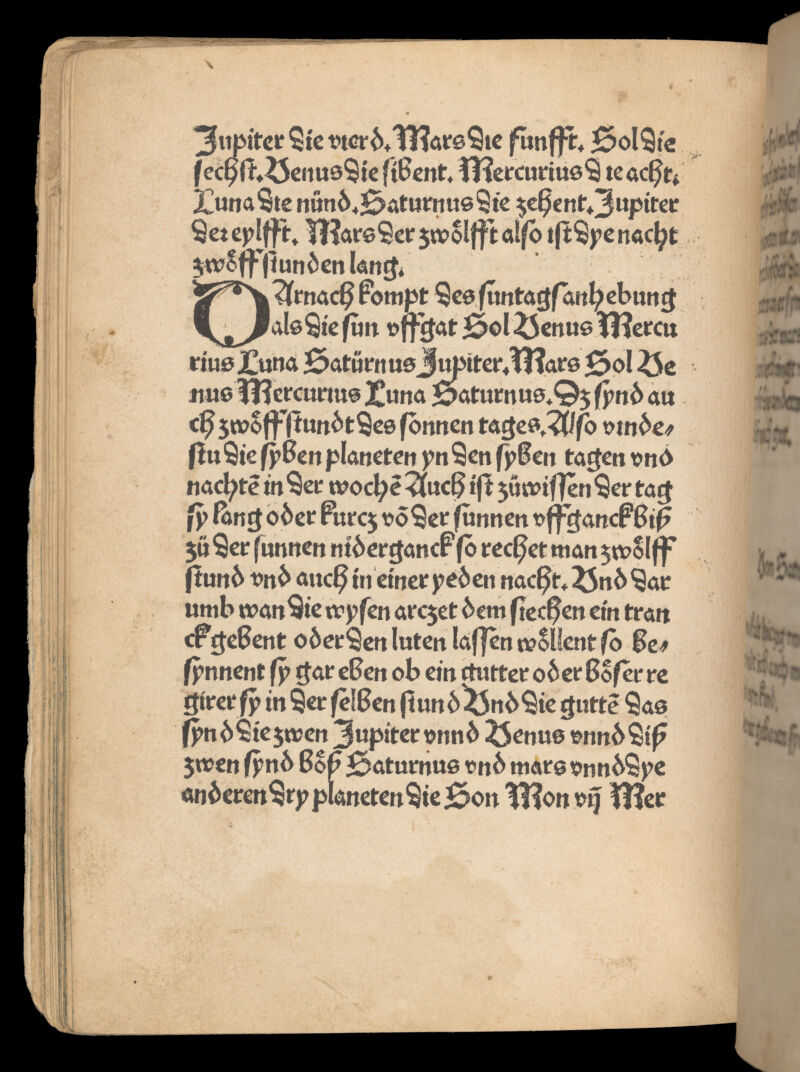 Jupiter die vierd. Mars die funfft. Sol die
sechſt. Venus die ſibent. Mercurius d ie acht.
Luna die nünd. Saturnus die zehent. Jupiter
der eylfft. Mars der zwoͤlfft alſo iſt dye nacht
zwoͤff ſtunden lang.
DArnach kompt des ſuntags anhebung
als die ſun vffgat Sol Venus Mercu
rius Luna Satürnus Jupiter. Mars Sol Ve
nus Mercurius Luna Saturnus. Dz ſynd au
ch zwoͤff ſtundt des ſonnen tages. Alſo vinde⸗
ſtu die ſyben planeten yn den ſyben tagen vnd
nachtē in der wochē Auch iſt zü wiſſen der tag
ſy lang oder kurcz vō der ſunnen vffganck biß
zü der ſunnen niderganck ſo rechet man zwoͤlff
ſtund vnd auch in einer yeden nacht. Vnd dar
umb wan die wyſen arczet dem ſiechen ein tran
ck gebent oder den luten laſſen woͤllent ſo be⸗
ſynnent ſy gar eben ob ein gutter oder boͤſer re
girer ſy in der ſelben ſtund Vnd die guttē das
ſynd die zwen Jupiter vnnd Venus vnnd diß
zwen ſynd boͤß Saturnus vnd mars vnnd dye
anderen dry planeten die Son Mon vn̄ Mer